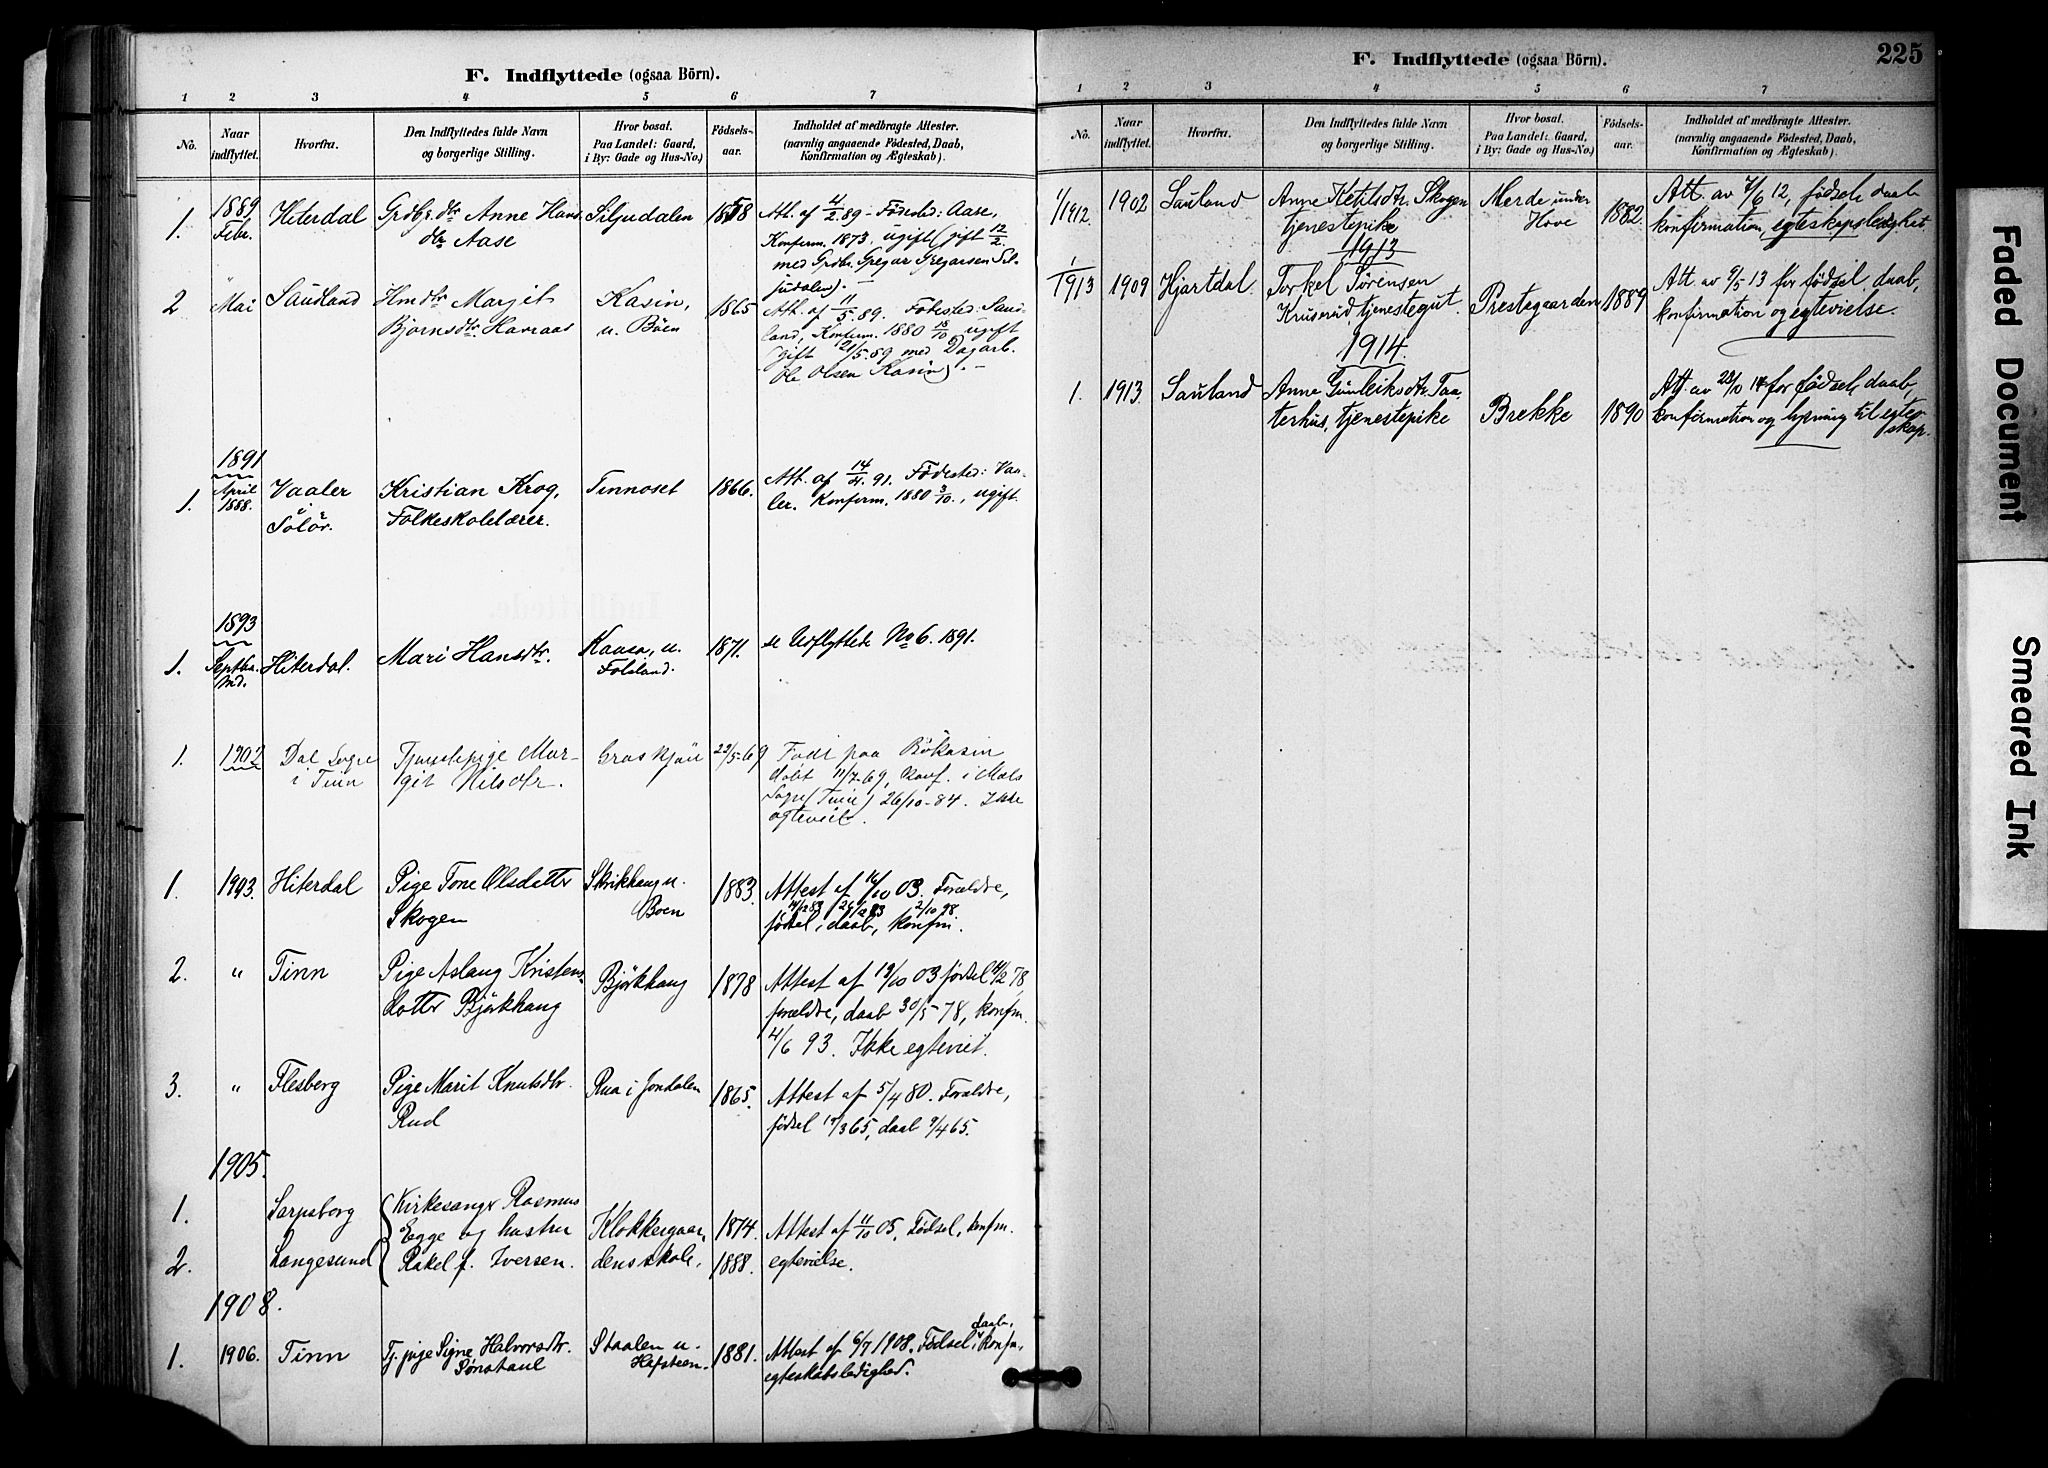 F. Indflyttede (ogsaa Börn).
1 2 3 4 5 6 7
No. Naar indflyttet. Hvorfra. Den Indflyttedes fulde Navn og borgerlige Stilling. Hvor bosat. Paa Landet: Gaard, i By: Gade og Hus-No.) Födsels-aar. Indholdet af medbragte Attester. (navnlig angaaende Födested, Daab, Konfirmation og Ægteskab).
1889
1. Febr. Hiterdal Grdbr.dtr Anne Hans Siljudalen 1858 Att. af 4/2 89 - Födested: Aase,
dtr Aase Konferm. 1873 ugift (gift 12/2
med Grdbr. Gregar Gregarsen Sil-
judalen). -
2 Mai Saudland Hmdtr Margit Kasin, 1865 Att. af 11/5 89. Födested: Saud-
Bjornsdtr. Haveraas u. Böen land, Konferm. 1880 18/10 ugift
(gift 21/5 89 med Dagarb.
Ole Olsen Kasin). -
1891
1. April Vaaler Kristian Krog, Tinnoset 1866. Att. af 14/4 91. Födested: Vaa-
1888. i Solör. Folkeskolelærer. ler. Konferm. 1880 3/10., ugift.
1893
1. Septbr. Hiterdal. Mari Hansdtr. Kaasa, u. 1871. se Udflyttede No 6. 1891.
Md. Folsland.
1. 1902 Dal Sogn Tjenestepige Mar- Graskjær 22/5-69 Födt paa Bökasin
i Tinn git Nilsdtr. döbt 11/7-69, Konf. i Mæls
Sogn (Tinn) 26/10-84. Ikke
egteviet.
1. 1903. Hiterdal Pige Tone Olsdatter Skrikhaug u. 1883. Attest af 16/10 03. Forældre,
Skogen Boen fødsel, daab, konfm.
2. " Tinn Pige Aslaug Kristens- Björkhaug 1878 Attest af 19/10 03 födsel 4/2 78,
datter Björkhaug forældre, daab 30/5-78, konfm.
4/6 93. Ikke egteviet.
3. " Flesberg Pige Marit Knutsdtr. Rua i Jondalen 1865. Attest af 5/4 80. Forældre,
Rud fødsel 19/3 65, daab 9/4 65.
1905.
1. Sarpsborg Kirkesanger Rasmus
Egge og hustru Klokkergaar- 1874. Attest af 11/10 05. Fødsel, konfm.
2. Langesund Rakel f. Iversen. dens skole. 1888. egtevielse.
1908.
1. 1906. Tinn Tj. pige Signe Halvorsdtr. Staalen u. 1881. Attest af 6/7 1908. Fødsel, daab, konfm,
Sønstaul Hafsteen. egteskabsledighed.
F. Indflyttede (ogsaa Börn). 225
1 2 3 4 5 6 7
No. Naar indflyttet. Hvorfra. Den Indflyttedes fulde Navn og borgerlige Stilling. Hvor bosat. Paa Landet: Gaard, i By: Gade og Hus-No.) Födsels-aar. Indholdet af medbragte Attester. (navnlig angaaende Födested, Daab, Konfirmation og Ægteskab).
1/1912 1902 Sauland Anne Ketilsdtr. Skogen Merde under 1882. Att. av 7/6 12, fødsel, daab
tjenestepike Hove konfirmation, egteskapsledighet
1913
1/1913 1909 Hjartdal. Torkel Sørensen Prestegaarden 1889 Att. av 9/5 13 for fødsel, daab,
Kruserud, tjenestegut. konfirmation og egtevielse.
1914.
1. 1913. Sauland Anne Gunleiksdtr. Taa- Brekke 1890 Att. av 22/10 14 for fødsel, daab,
terhus, tjenestepike konfirmation og lysning til egte-
skap.
Faded Document
Smeared Ink